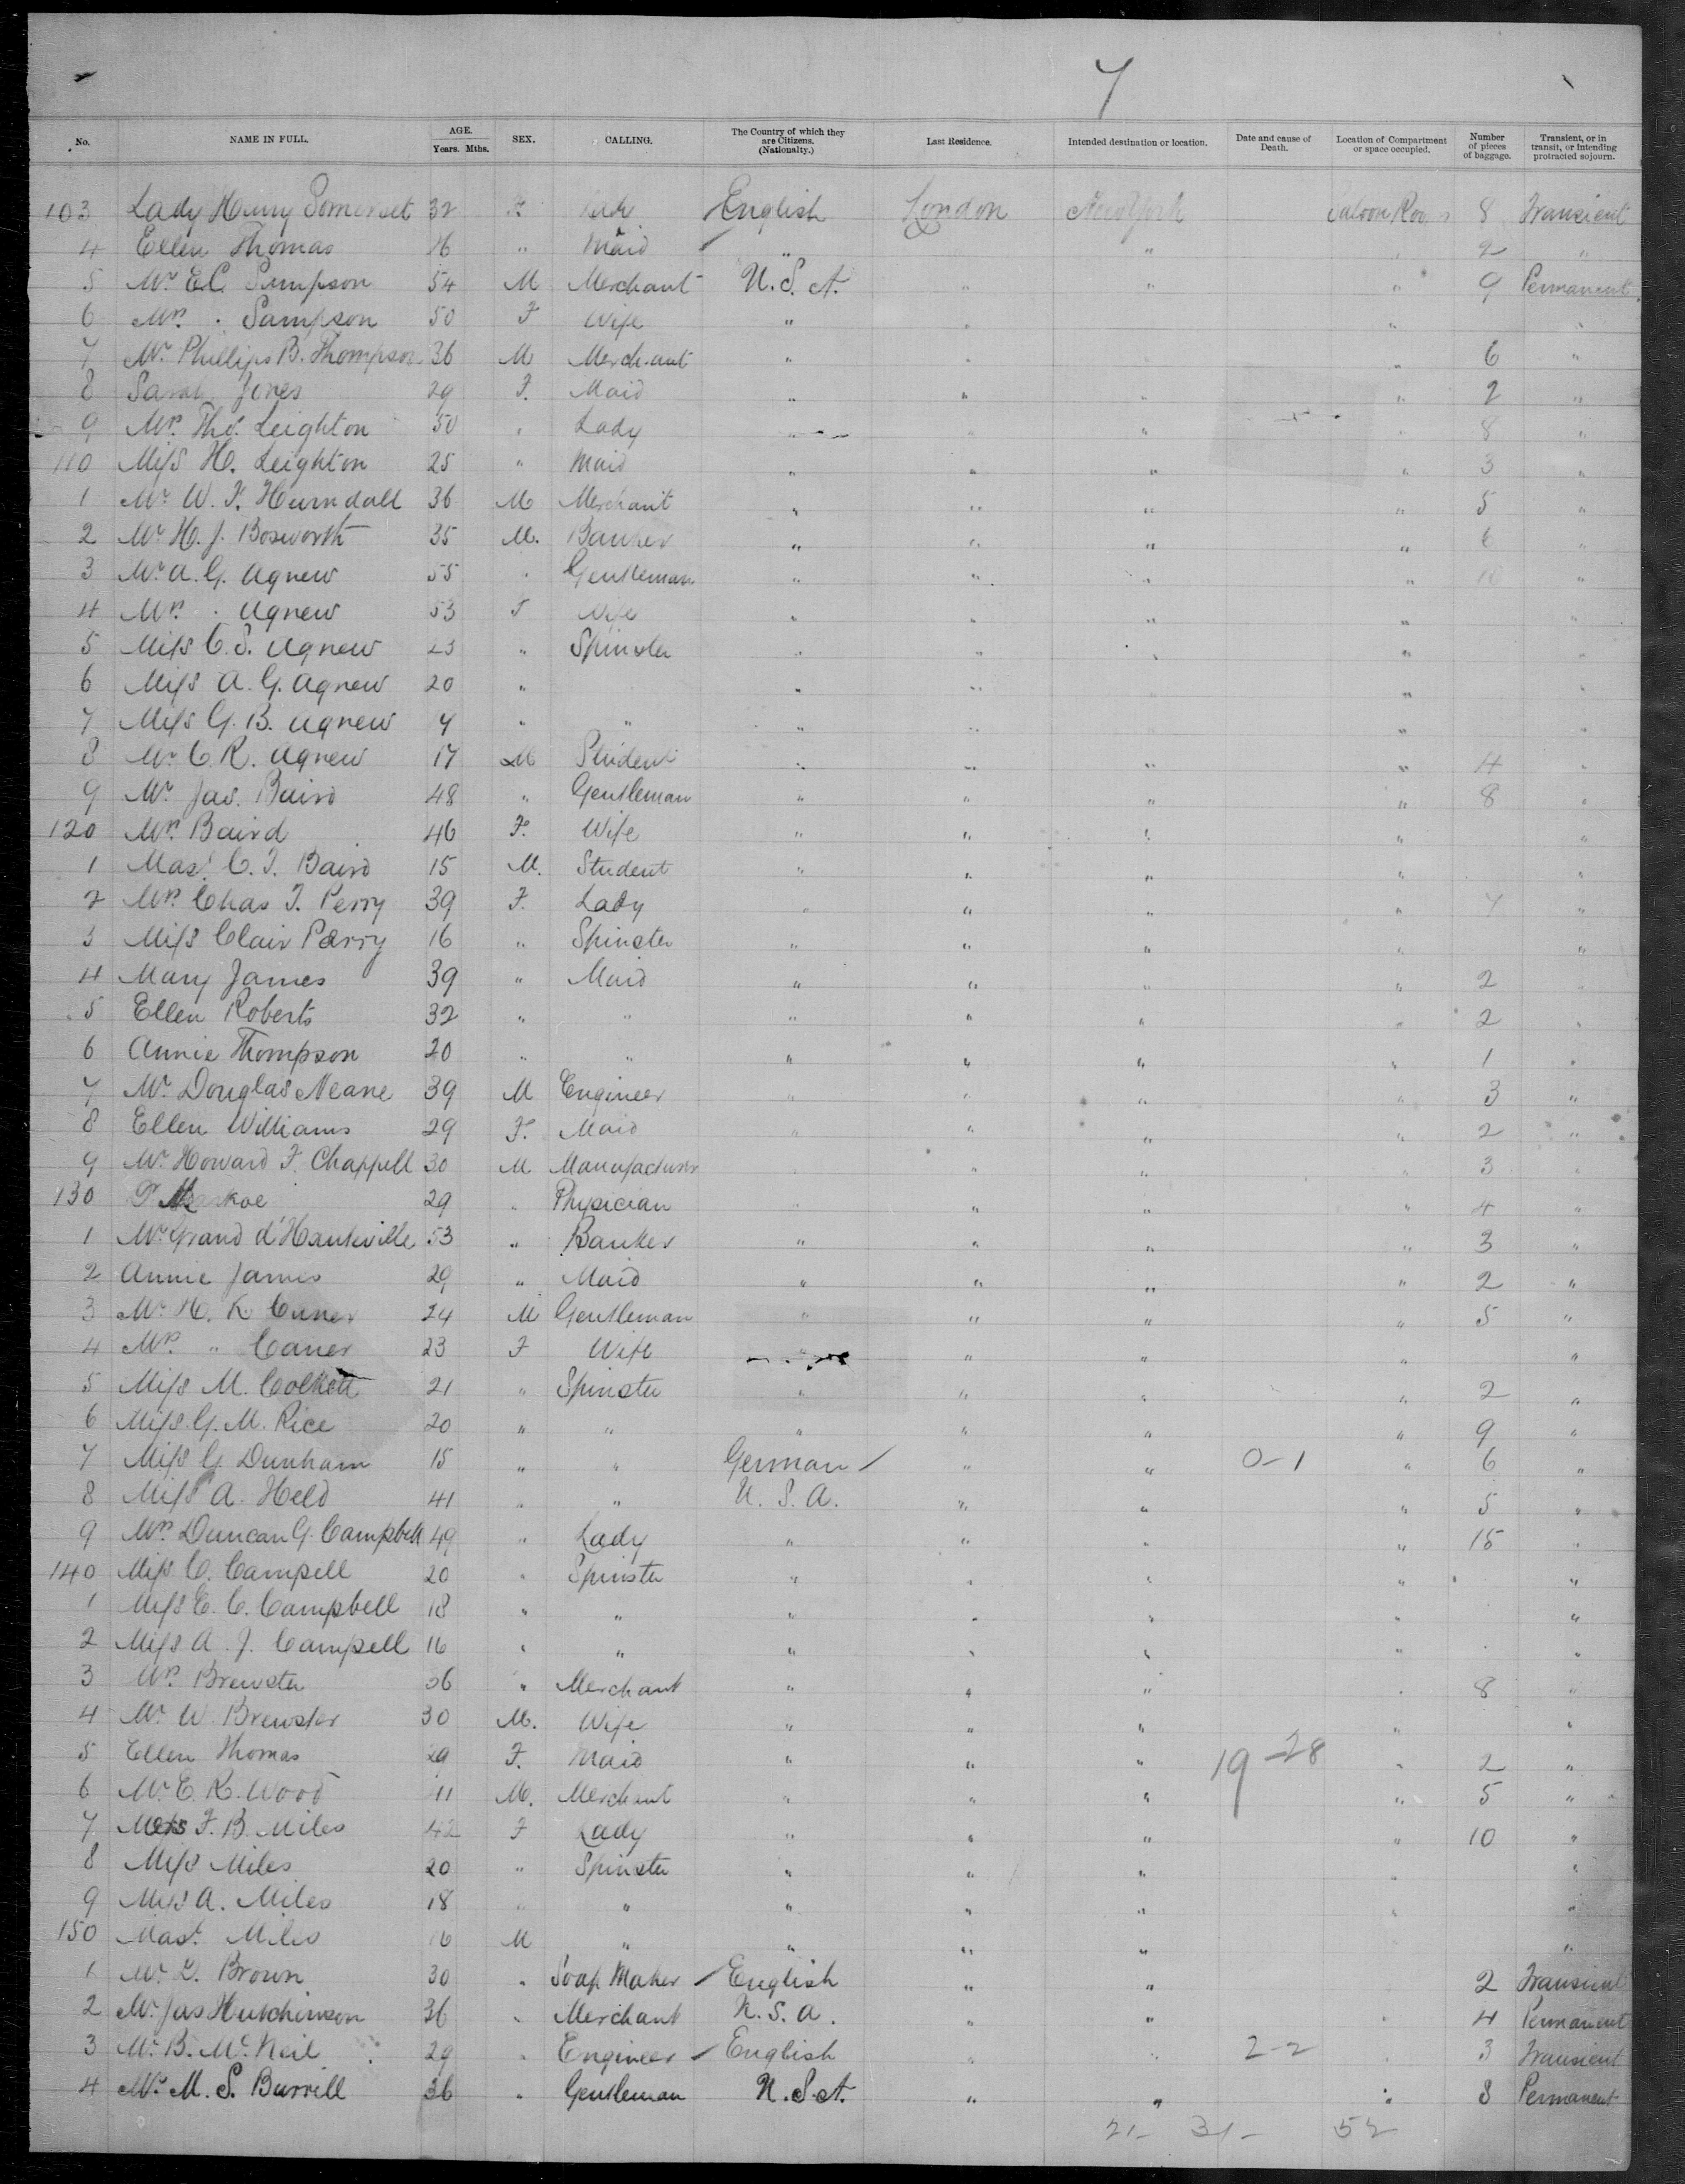 7
No. NAME IN FULL. AGE. Years. Mths. SEX. CALLING. The Country of which they are Citizens. (Nationalty.) Last Residence. Intended destination or location. Date and cause of Death. Location of Compartment or space occupied. Number of pieces of baggage. Transient, or in transit, or intending protracted sojourn.
103 Lady Henry Somerset 32 F. English London New York Saloon 8 Transient
4 Ellen Thomas 16 " Maid " " " 2 "
5 Mr. E.C. Sampson 54 M Merchant U.S.A. " " " 9 Permanent
6 Mrs. " Sampson 50 F Wife " " " "
7 Mr. Phillips B. Thompson 36 M Merchant " " " 6 "
8 Sarah Jones 29 F. Maid " " " " 2 "
9 Mrs. Thos. Leighton 50 " Lady " " " " 8 "
110 Miss H. Leighton 25 " Maid " " " " 3 "
1 Mr. W. F. Hurndall 36 M Merchant " " " " 5 "
2 Mr. H. J. Bosworth 35 M. Banker " " " " 6 "
3 Mr. A. G. Agnew 55 " Gentleman " " " " 10 "
4 Mrs. " Agnew 53 F Wife " " " " "
5 Miss C. S. Agnew 23 " Spinster " " " " "
6 Miss A. G. Agnew 20 " " " " "
7 Miss G. B. Agnew 7 " " " " " "
8 Mr. C. R. Agnew 17 M Student " " " " 4 "
9 Mr. Jas. Baird 48 " Gentleman " " " " 8 "
120 Mrs. Baird 46 F. Wife " " " " "
1 Mast. C. T. Baird 15 M. Student " " " " "
2 Mrs. Chas T. Perry 39 F. Lady " " " " 7 "
3 Miss Clair Perry 16 " Spinster " " " " "
4 Mary James 39 " Maid " " " " 2 "
5 Ellen Roberts 32 " " " " " " 2 "
6 Annie Thompson 20 " " " " " " 1 "
7 Mr. Douglas Neane 39 M Engineer " " " " 3 "
8 Ellen Williams 29 F. Maid " " " " 2 "
9 Mr. Howard F. Chappell 30 M Manufacturer " " " " 3 "
130 Dr. 29 " Physician " " " " 4 "
1 Mr. Grand d'Hauteville 53 " Banker " " " " 3 "
2 Annie James 29 " Maid " " " " 2 "
3 Mr. H. K. Caner 24 M Gentleman " " " " 5 "
4 Mrs. " Caner 23 F Wife " " " " "
5 Miss M. Colkett 21 " Spinster " " " " 2 "
6 Miss G. M. Rice 20 " " " " " " 9 "
7 Miss G. Dunham 15 " " German " " 0-1 " 6 "
8 Miss A. Held 41 " " U. S. A. " " " 5 "
9 Mrs. Duncan G. Campbell 49 " Lady " " " " 15 "
140 Miss C. Campell 20 " Spinster " " " " "
1 Miss E. C. Campbell 18 " " " " " " "
2 Miss A. J. Campell 16 " " " " " " "
3 Mrs. Brewster 36 " Merchant " " " " 8 "
4 Mr. W. Brewster 30 M. Wife " " " " "
5 Ellen Thomas 29 F. Maid " " " 19-28 " 2 "
6 Mr. E. R. Wood 11 M. Merchant " " " " 5 "
7 Mrs F. B. Miles 42 F Lady " " " " 10 "
8 Miss Miles 20 " Spinster " " " " "
9 Miss A. Miles 18 " " " " " " "
150 Mast. Miles 16 M " " " " "
1 Mr. Brown 30 " Soap Maker English " " 2 Transient
2 Mr. Jas Hutchinson 36 " Merchant U.S.A. " " " 4 Permanent
3 Mr. B. McNeil 29 " Engineer English " " 2-2 " 3 Transient
4 Mr. M. S. Burrill 36 " Gentleman U.S.A. " " " 8 Permanent
21- 31- 52